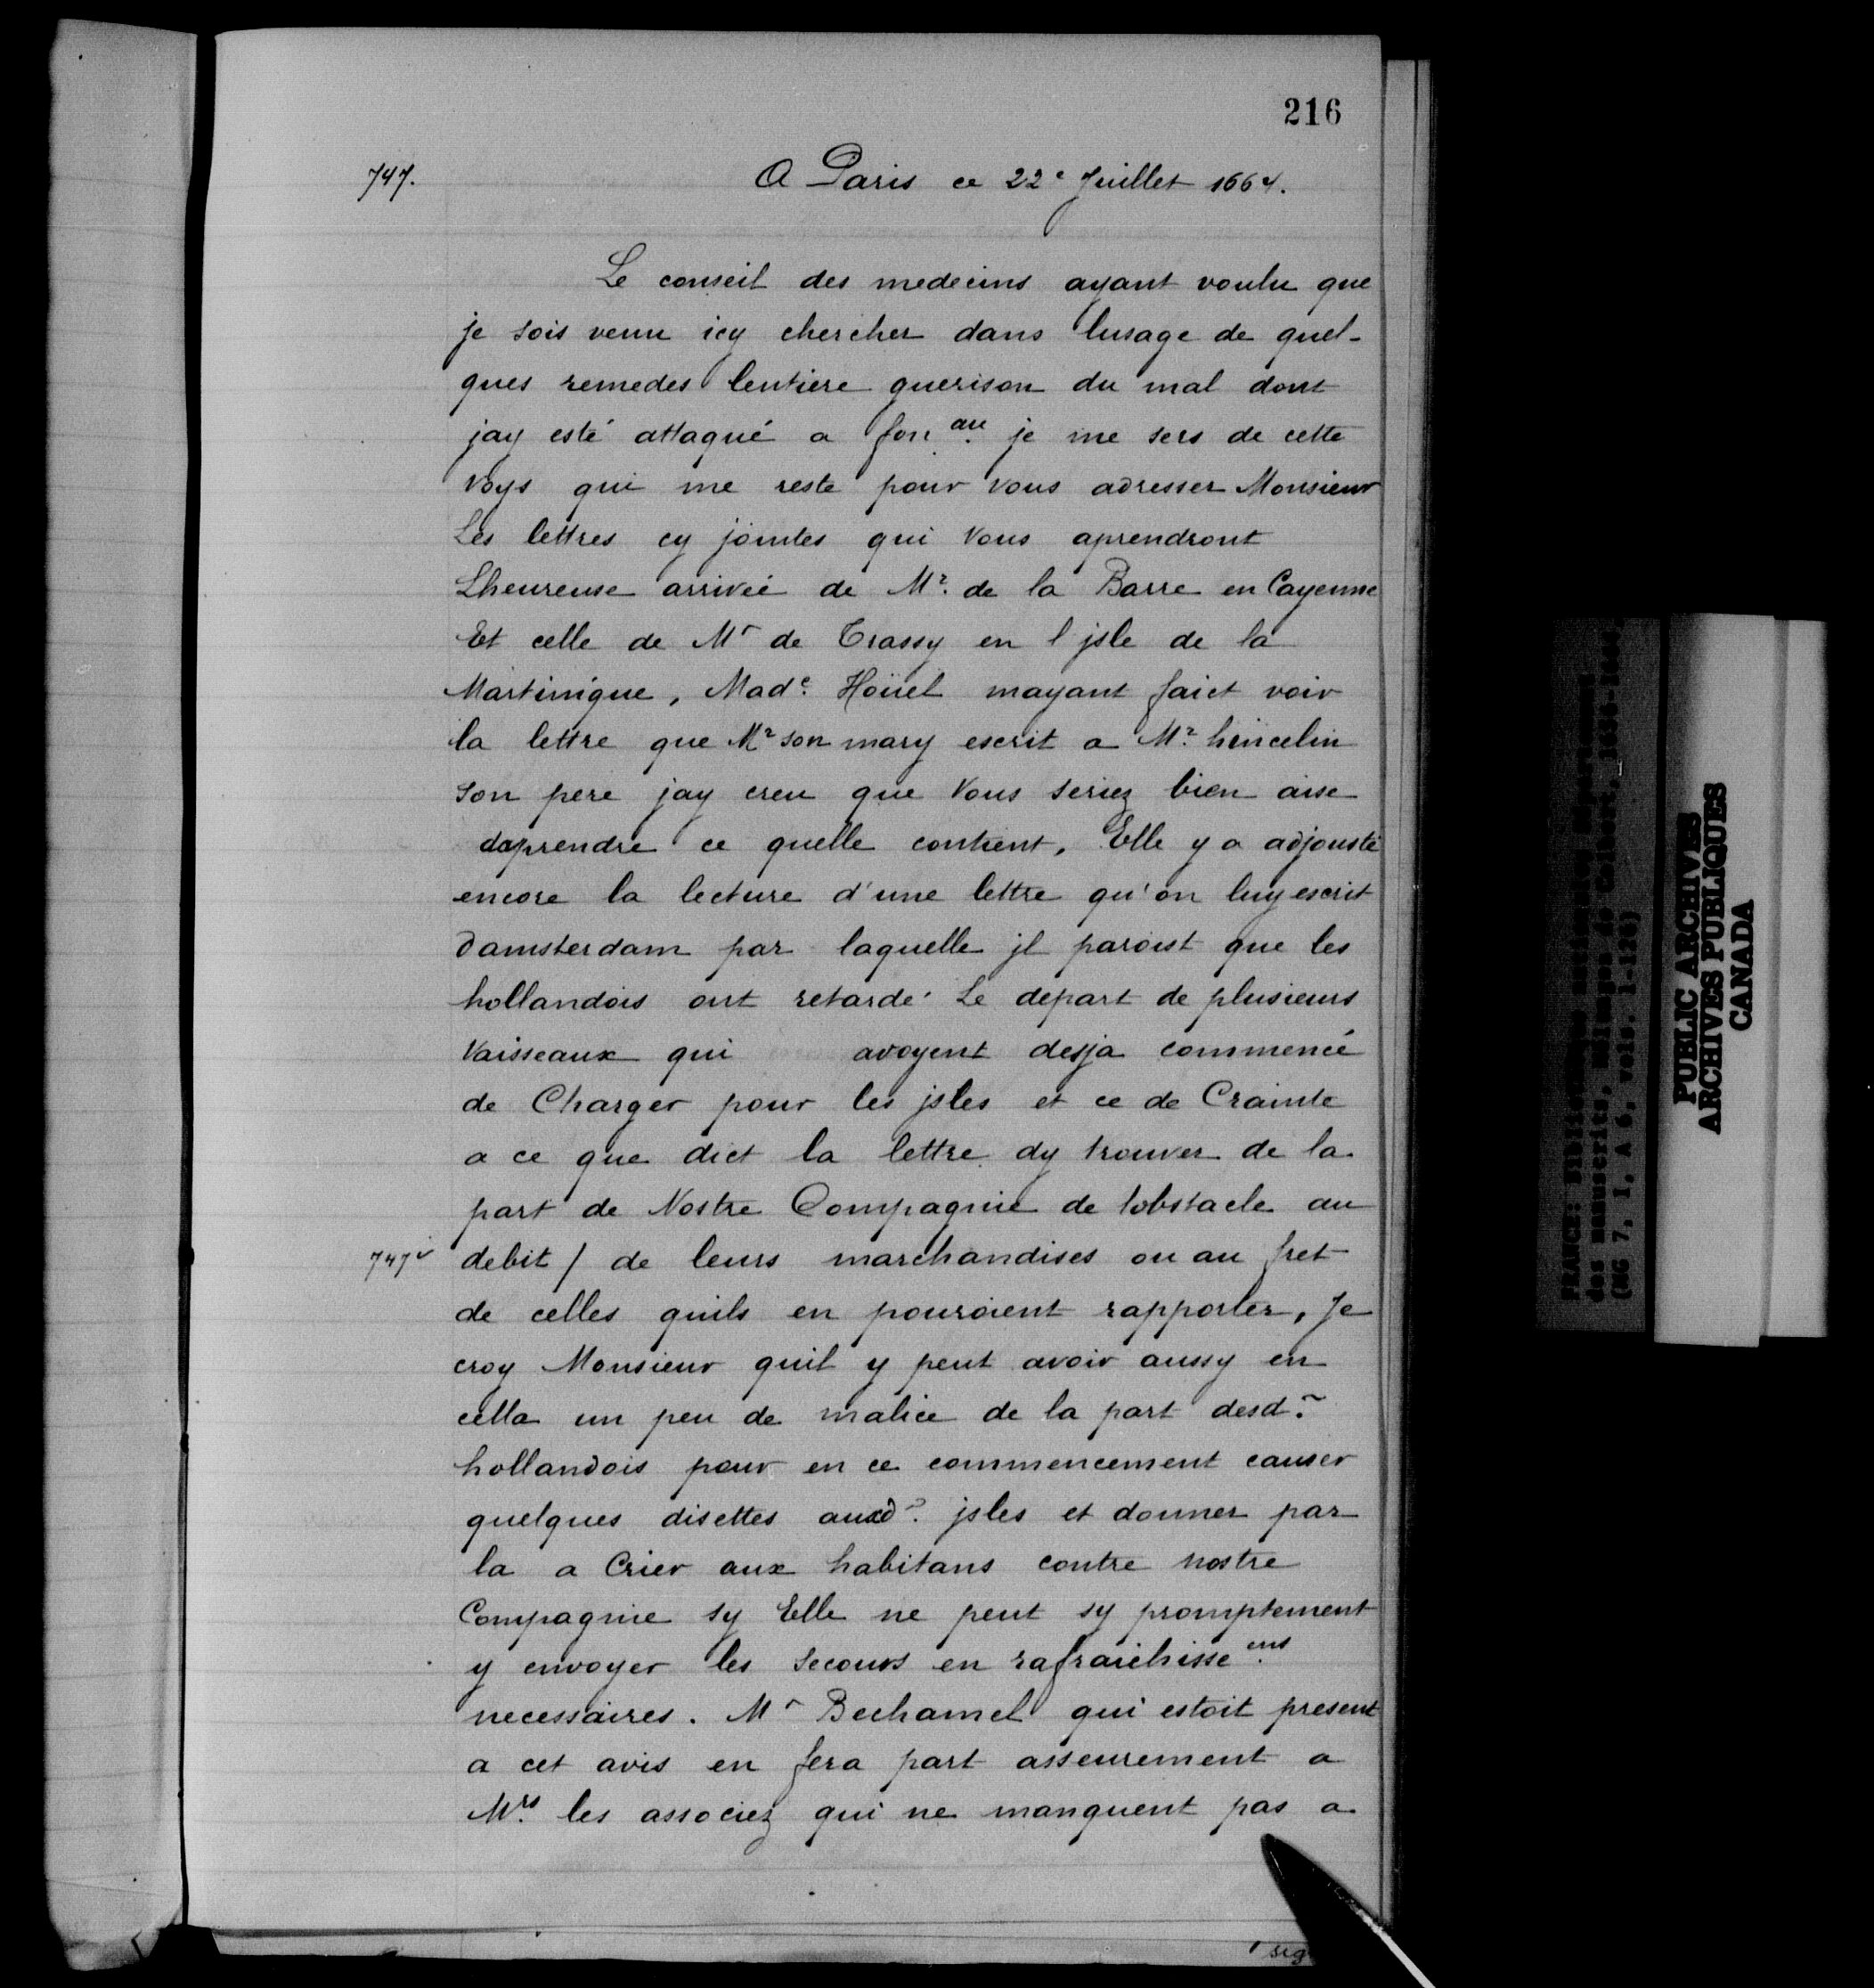 216
747. A Paris ce 22e Juillet 1664.
Le conseil des medecins ayant voulu que
je sois venu icy chercher dans lusage de quel-
ques remedes lentiere guerison du mal dont
jay esté attaqué a fon.au je me sers de cette
Voys qui me reste pour vous adresser Monsieur
Les lettres cy jointes qui Vous aprendront
Lheureuse arrivée de Mr. de la Barre en Cayenne
Et celle de Mr de Trassy en l jsle de la
Martinique, Made. Hoüel mayant faict voir
la lettre que Mr son mary escrit a Mr. hincelin
son pere jay creu que Vous seriez bien aise
daprendre ce quelle contient. Elle y a adjousté
encore la lecture d'une lettre qu'on luy escrit
damsterdam par laquelle jl paroist que les
hollandois ont retardé Le depart de plusieurs
Vaisseaux qui avoyent desja commencé
de Charger pour les jsles et ce de Crainte
a ce que dict la lettre dy trouver de la
part de Nostre Compagnie de lobstacle au
747v debit / de leurs marchandises ou au fret
de celles quils en pouroient rapporter, Je
croy Monsieur quil y peut avoir aussy en
cella un peu de malice de la part desd.
hollandois pour en ce commencement causer
quelques disettes auxd. jsles et donner par
la a Crier aux habitans contre nostre
Compagnie sy Elle ne peut sy promptement
y envoyer les secours en rafraichisse.ens
necessaires. Mr Bechamel qui estoit present
a cet avis en fera part asseurement a
Mrs. les associez qui ne manquent pas a
PUBLIC ARCHIVES
ARCHIVES PUBLIQUES
CANADA
(MG 7, I, A 6, vols. 1-126)